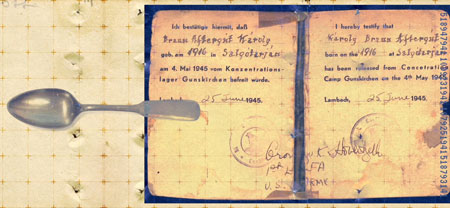 Ich bestätige hiermit, daß
Braun Aftergut Karoly
geb. am 1916 in Salgótarján
am 4. Mai 1945 vom Konzentrations-
lager Gunskirchen befreit wurde.
Lambach, 25 June 1945.
I hereby testify that
Karoly Braun Aftergut
born on the 1916 at Salgótarján
has been released from Concentration
Camp Gunskirchen on the 4th May 1945
Lambach, 25 June 1945.
1st FA
U.S. ARMY